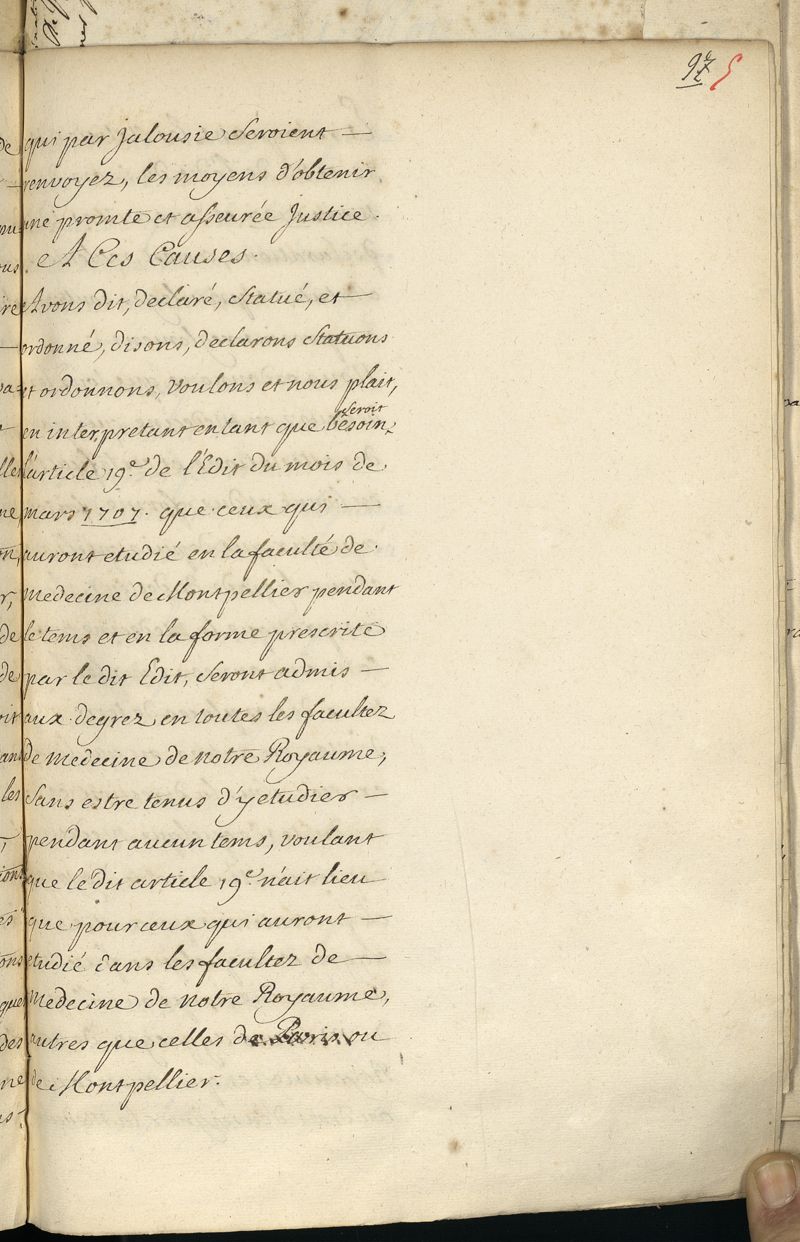 97
5
qui par Jalousie seroient —
renvoyez, les moyens d'obtenir
une promte et asseurée Justice.
A Ces Causes.
Avons dit, declaré, statué, et —
ordonné, disons, declarons statuons
et ordonnons, voulons et nous plait,
seroit
en interpretant en tant que besoin,
l'article 19e. de l'Edit du mois de
mars 1707. que ceux qui —
auront etudié en la faculté de
Medecine de Montpellier pendant
le tems et en la forme prescrite
par le dit Edit, seront admis —
aux degrez en toutes les facultez
de medecine de notre Royaume,
sans estre tenus d'y etudier —
pendant aucun tems, voulant
que le dit article 19e. n'ait lieu
que pour ceux qui auront —
etudié dans les facultez de —
Medecine de notre Royaume,
autres que celles de Paris ou
de Montpellier.